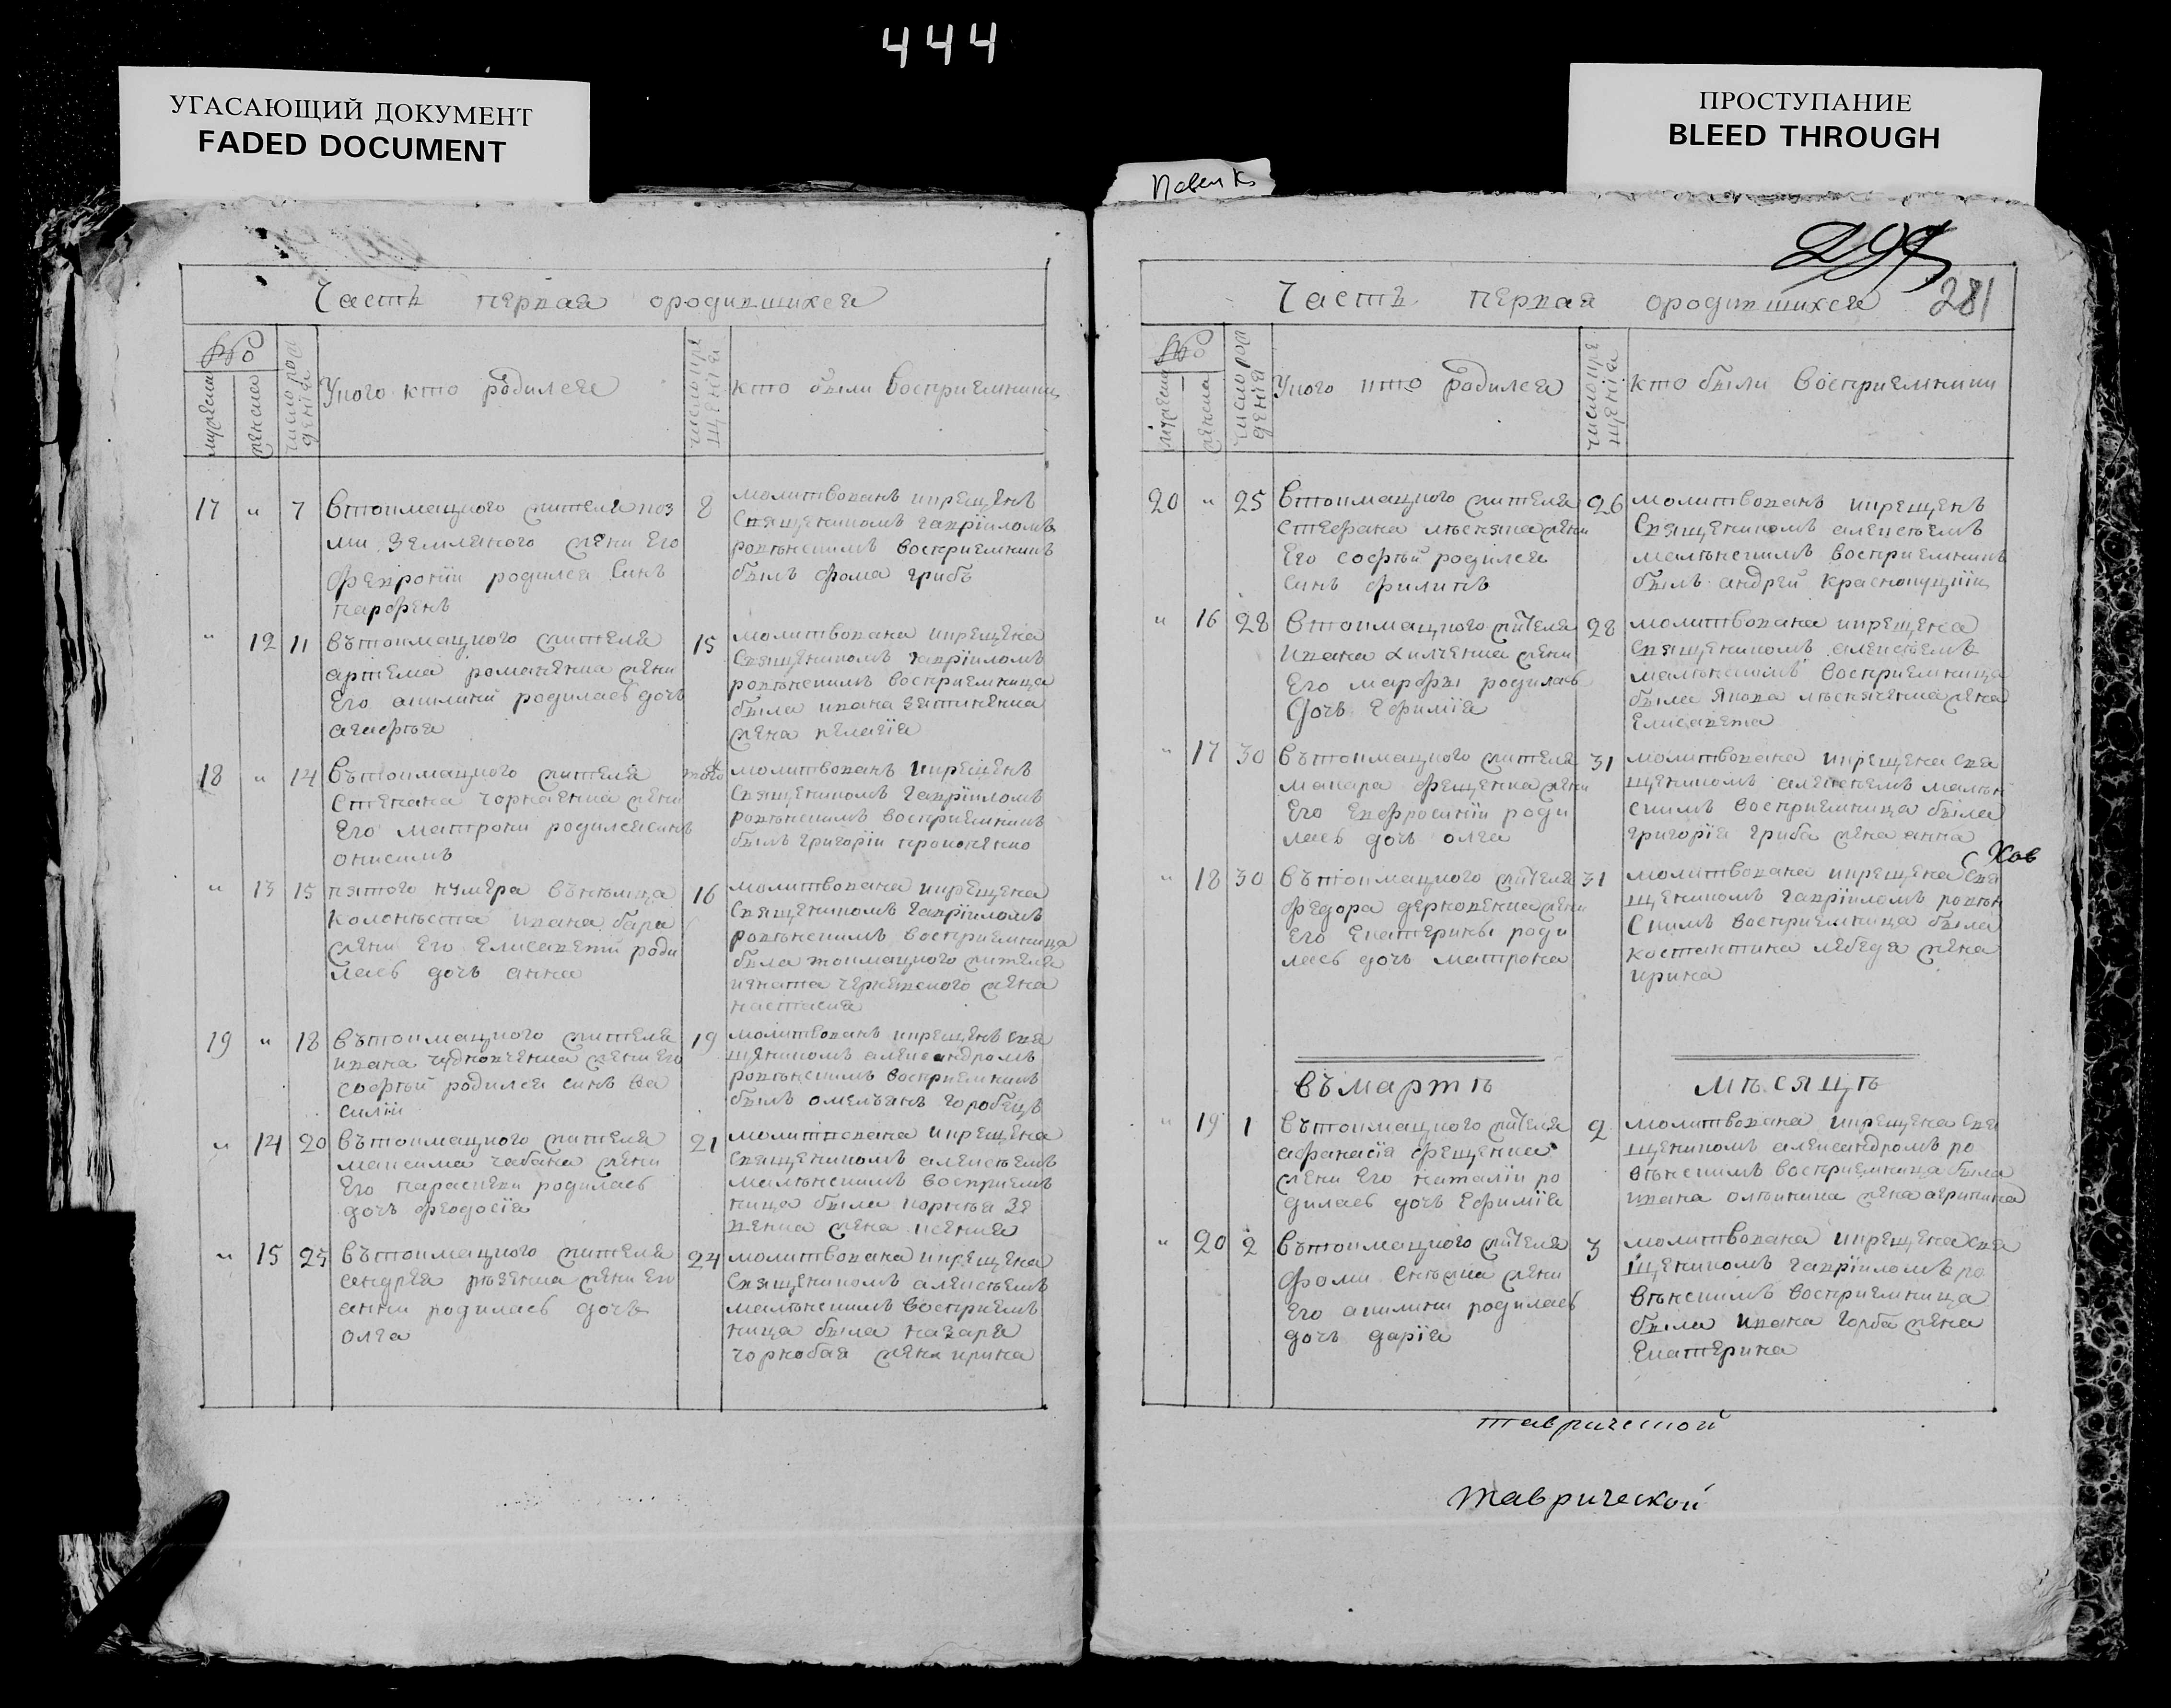 444
УГАСАЮЩИЙ ДОКУМЕНТ
FADED DOCUMENT
ПРОСТУПАНИЕ
BLEED THROUGH
281
Часть первая ородившихся
№
мужеска
женска
число рож
денія
Укого кто родился
число кре
щенія
кто были восприемники
17 " 7
втокмацкого жителя коз
ми земляного жени его
февроніи родился синъ
парфенъ
8
молитвованъ икрещенъ
священикомъ гавріиломъ
ровѣнскимъ восприемникъ
былъ фома грибъ
" 12 11
вътокмацкого жителя
артема романенка жени
его акилини родилась дочь
агафья
15
молитвована икрещена
священикомъ гавріиломъ
ровѣнскимъ восприемница
была ивана
жена пелагія
18 " 14
вътокмацкого жителя
степана чорнаенка жени
его матрони родился синъ
онисимъ
того
молитвованъ икрещенъ
священикомъ гавріиломъ
ровѣнскимъ восприемникъ
былъ григоріи
" 13 15
пятого нумера
колониста ивана
жени его елисавети роди
лась дочь анна
16
молитвована икрещена
священикомъ гавріиломъ
ровѣнскимъ восприемница
была токмацкого жителя
игната жена
настасия
19 " 18
вътокмацкого жителя
ивана жени его
софьи родился синъ ва
силіи
19
молитвованъ икрещенъ свя
щеникомъ александромъ
ровѣнскимъ восприемникъ
былъ омельянъ горобецъ
" 14 20
вътокмацкого жителя
максима чабана жени
его параскеви родилась
дочь феодосія
21
молитвована икрещена
священикомъ алексѣемъ
малѣнскимъ восприем
ница была корнѣя зе
венка жена ксения
" 15 23
вътокмацкого жителя
андрея рѣзенка жени его
анни родилась дочь
олга
24
молитвована икрещена
священикомъ алексѣемъ
малѣнскимъ восприем
ница была назара
чорнобая жена ирина
Часть первая ородившихся
№
мужеска
женска
число рож
денія
Укого кто родился
число кре
щенія
кто были восприемники
20 " 25
втокмацкого жителя
стефана жени
его софьи родился
синъ филипъ
26
молитвованъ икрещенъ
священикомъ алексѣемъ
малѣнскимъ восприемникъ
былъ андрей краснокуцкіи
" 16 28
втокмацкого жителя
ивана жени
его марфы родилась
дочь ефимія
28
молитвована икрещена
священикомъ алексѣемъ
малѣнскимъ восприемница
была якова жена
елисавета
" 17 30
вътокмацкого жителя
макара фещенка жени
его евфросиніи роди
лась дочь олга
31
молитвована икрещена свя
щеникомъ алексѣемъ малѣн
скимъ восприемница была
григорія гриба жена анна
" 18 30
вътокмацкого жителя
федора жени
его екатерины роди
лась дочь матрона
31
молитвована икрещена свя
щеникомъ гавріиломъ ровѣн
скимъ восприемница была
костантина лебедя жена
ирина
въ мартѣ мѣсяцѣ
" 19 1
вътокмацкого жителя
афанасія фещенка
жени его наталіи ро
дилась дочь ефимія
2
молитвована икрещена свя
щеникомъ александромъ ро
вѣнскимъ восприемница была
ивана жена агрипина
" 20 2
вътокмацкого жителя
фоми жени
его акилини родилась
дочь дарія
3
молитвована икрещена свя
щеникомъ гавріиломъ ро
вѣнскимъ восприемница
была ивана горба жена
екатерина
таврической
таврической